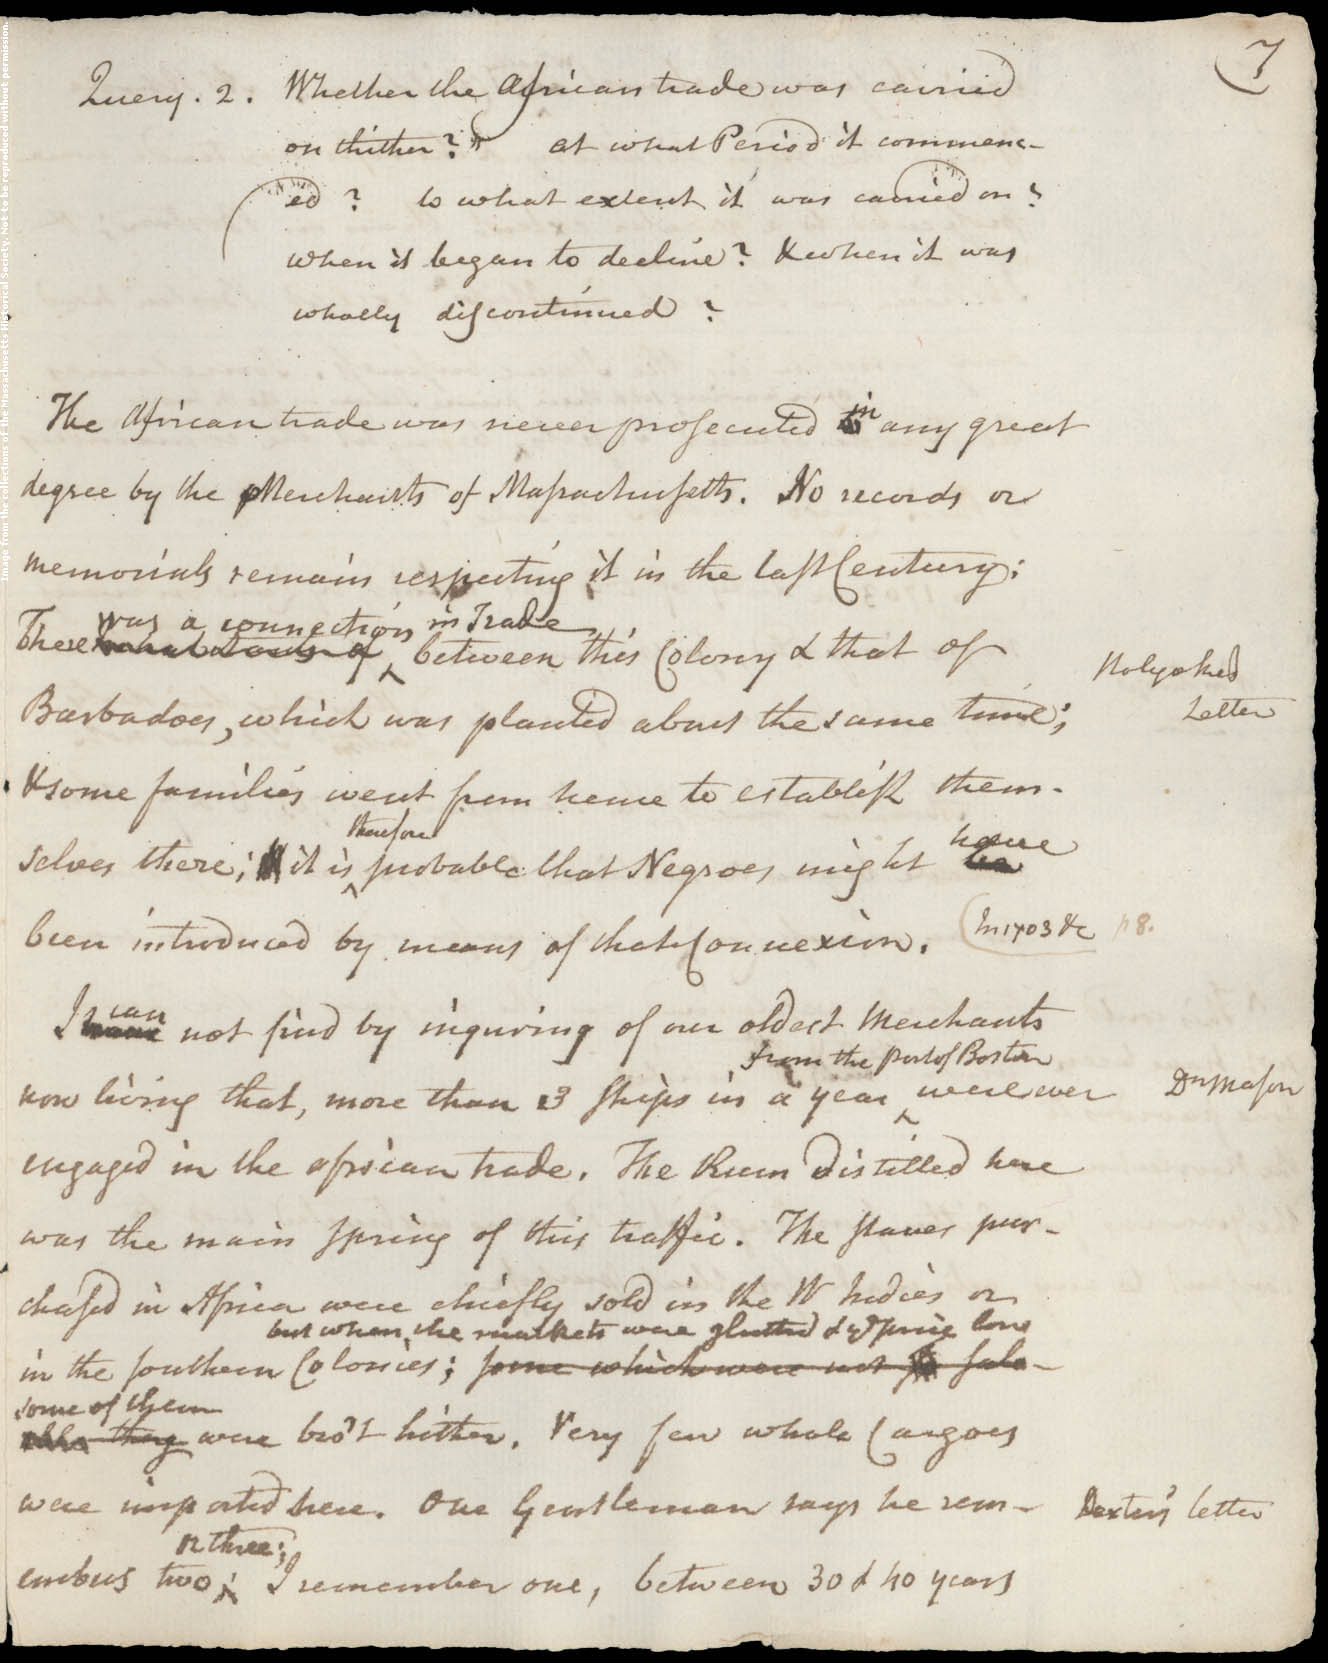 7
Query. 2. Whether the African trade was carried
on thither? at what Period it commenc-
ed? to what extent it was carried on?
when it began to decline? & when it was
wholly discontinued?
The African trade was never prosecuted in any great
degree by the Merchants of Massachusetts. No records or
memorials remain respecting it in the last Century;
was a connection in Trade
There between this Colony & that of
Holyoke's
Letter
Barbadoes, which was planted about the same time;
& some families went from hence to establish them-
therefore
have
selves there; it is probable that Negroes might be
been introduced by means of that Connexion. (In 1703 &c p 8.
can
I have not find by inquiring of our oldest Merchants
from the port of Boston
now living that, more than 3 ships in a year were ever
Dn Mason
engaged in the african trade. The Rum distilled here
was the main spring of this traffic. The slaves pur-
chased in Africa were chiefly sold in the W Indies or
but when the markets were glutted & ye price low
in the southern Colonies; some which were not so sale-
some of them
able they were bro't hither. Very few whole Cargoes
were imported here. One Gentleman says he rem-
Dexter's letter
or three;
embers two; I remember one, between 30 & 40 years
Image from the collections of the Massachusetts Historical Society. Not to be reproduced without permission.